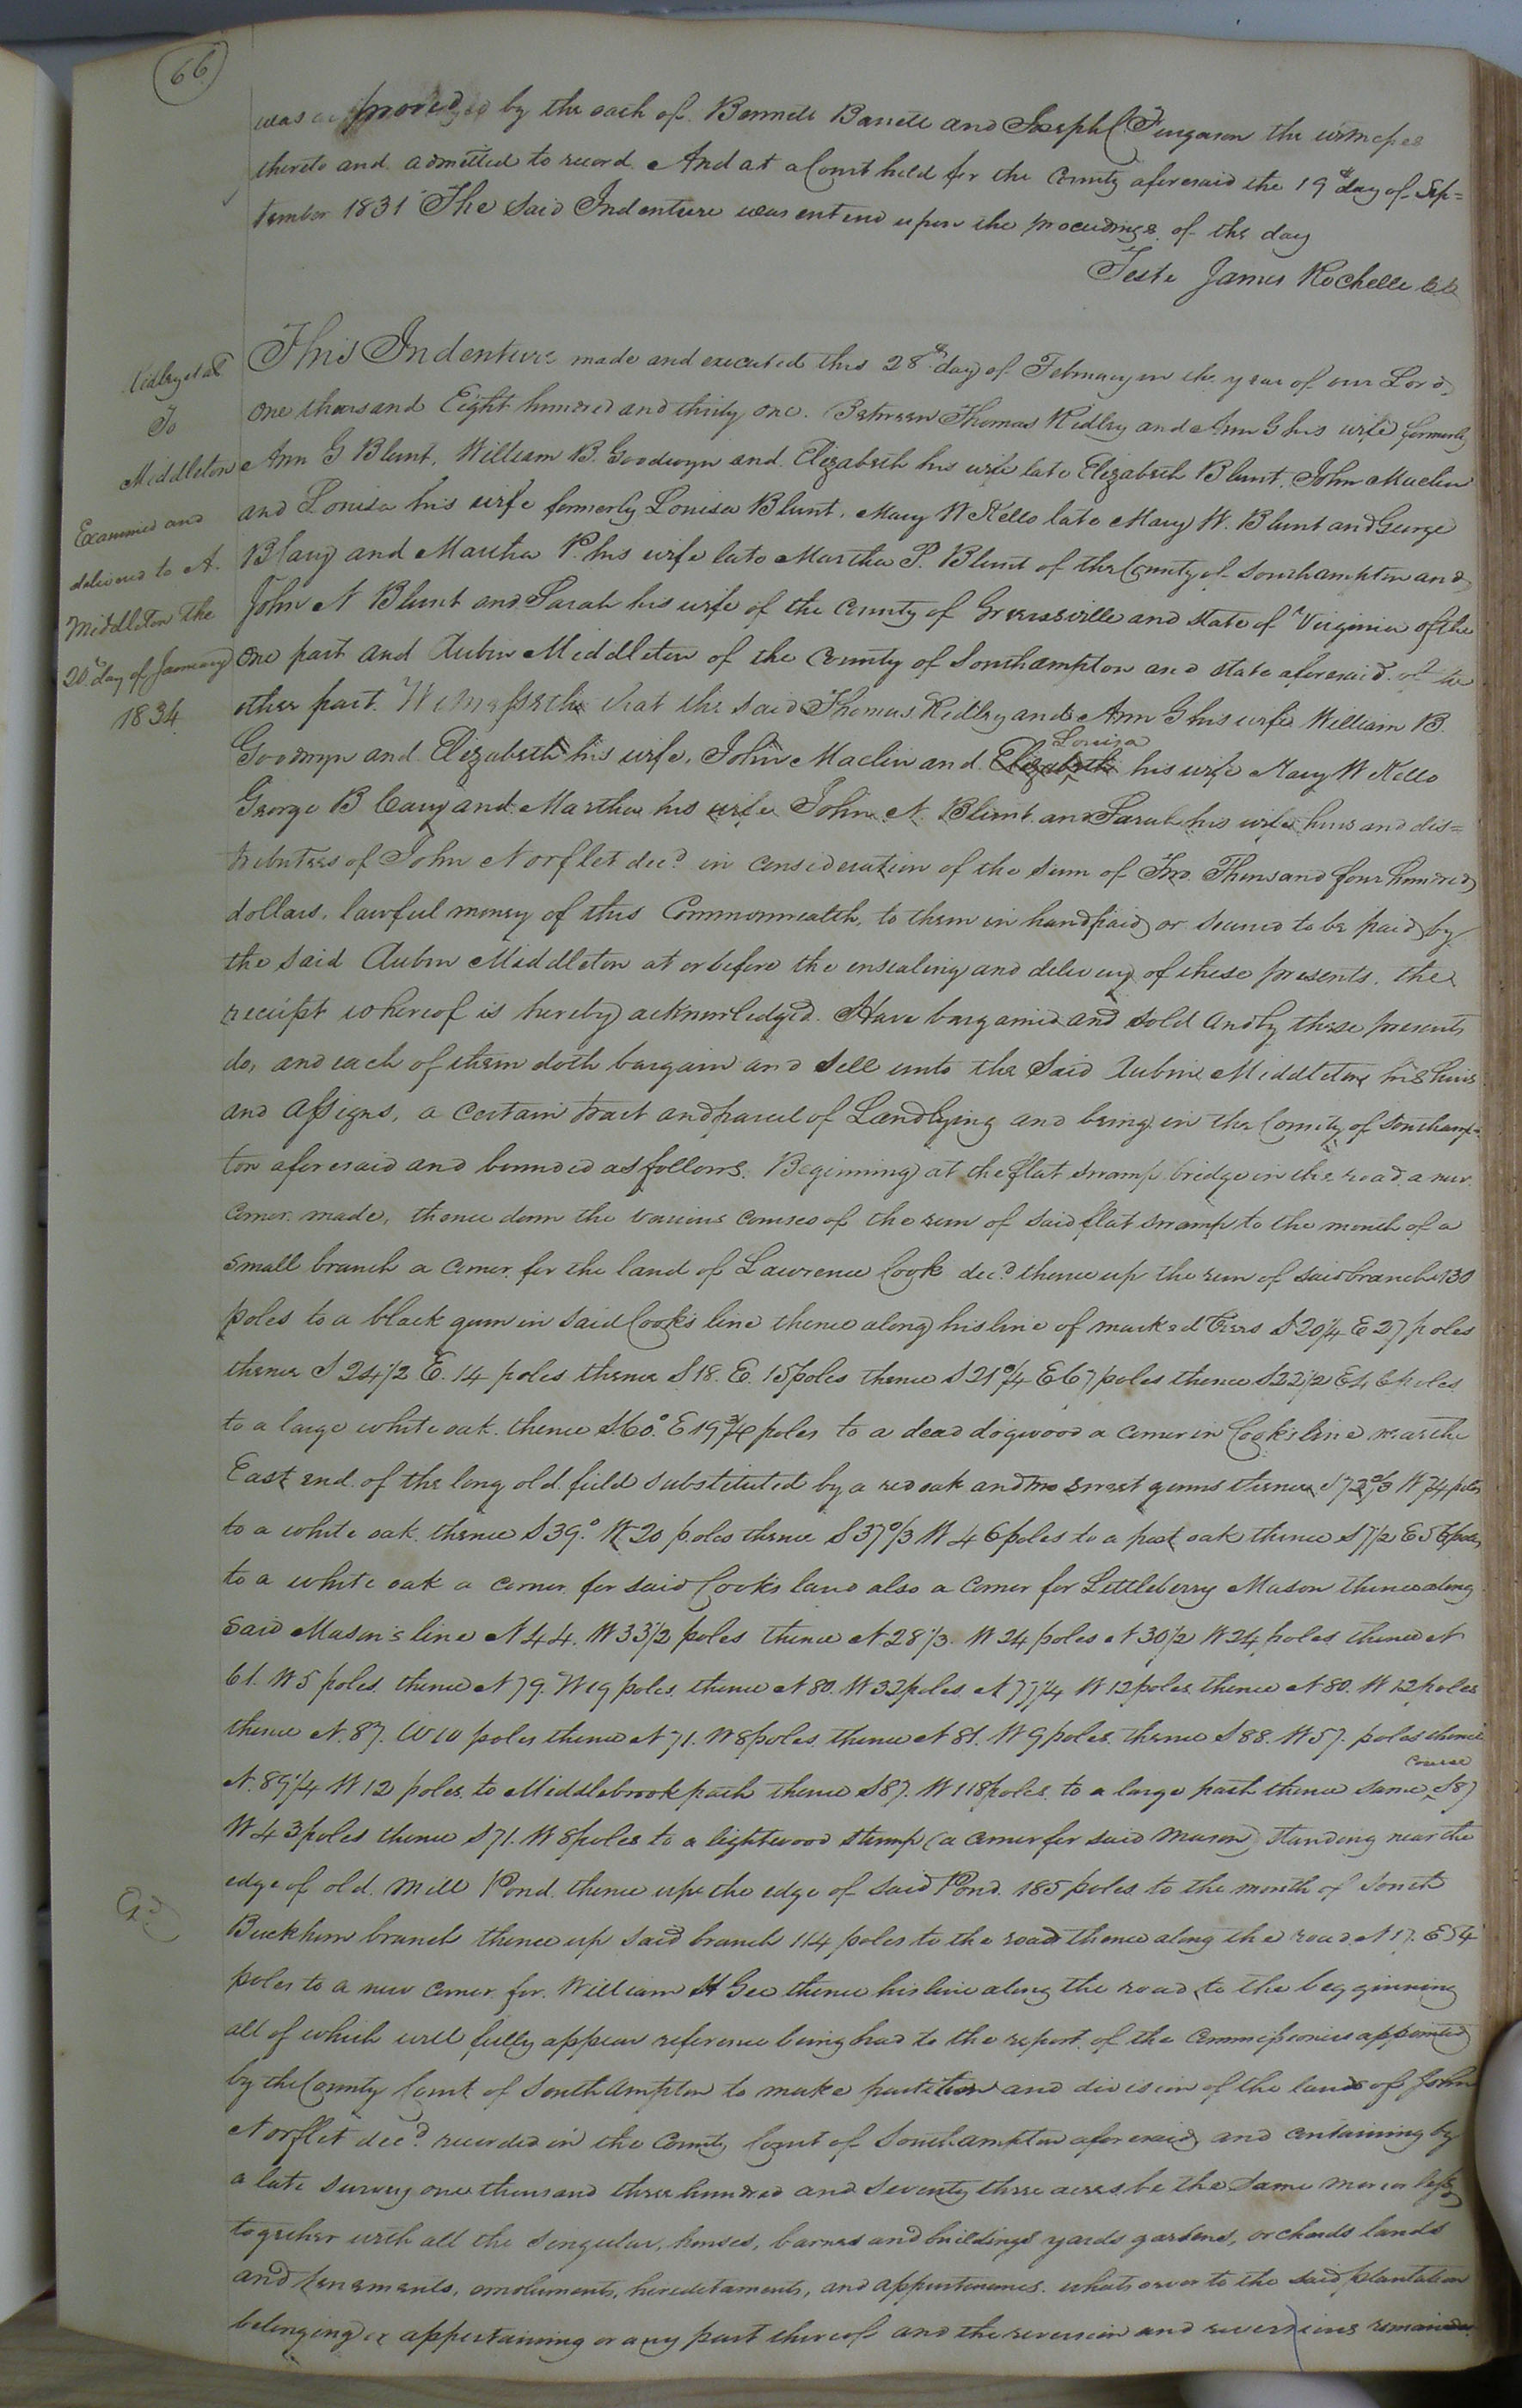 66
was proved by the oath of Bennett Barrett and Joseph C Ferguson the witnesses
thereto and admitted to record And at a Court held for the County aforesaid the 19th day of Sep=
tember 1831 The said Indenture was enterd upon the proceedings of the day
Teste James Rochelle
Ridley et al
To
Middleton
Examined and
delivered to A.
Middleton the
20th day of January
1834
This Indenture made and executed this 28th day of February in the year of our Lord
one thousand Eight hundred and thirty one. Between Thomas Ridley and Ann G his wife formerly
Ann G Blunt, William B. Goodwyn and Elizabeth his wife late Elizabeth Blunt, John Maclin
and Louisa his wife formerly Louisa Blunt, Mary W Kello late Mary W. Blunt and George
B Cary and Martha P. his wife late Martha P. Blunt of the County of Southampton and
John N Blunt and Sarah his wife of the County of Greensville and state of Virginia of the
one part and Aubin Middleton of the County of Southampton and state aforesaid of the
other part. Witnesseth that the said Thomas Ridley and Ann G his wife William B.
Goodwyn and Elizabeth his wife, John Maclin and Elizabeth Louisa his wife Mary W Kello
George B Cary and Martha his wife John N. Blunt and Sarah his wife heirs and dis=
tributees of John Norflet decd. in consideration of the sum of Two Thousand four hundred
dollars, lawful money of this Commonwealth, to them in hand paid or secured to be paid by
the said Aubin Middleton at or before the ensealing and delivery of these presents, the
receipt whereof is hereby acknowledged. Have bargained and sold and by these presents
do, and each of them doth bargain and sell unto the said Aubin Middleton his heirs
and assigns, a certain tract and parcel of Land lying and being in the County of Southamp=
ton aforesaid and bounded as follows. Beginning at the flat swamp bridge in the road a new
corner made, thence down the various courses of the run of said flat swamp to the mouth of a
small branch a corner for the land of Lawrence Cook decd. thence up the run of said branch 130
poles to a black gum in said Cook's line thence along his line of marked trees S 20 1/4 E 27 poles
thence S 24 1/2 E. 14 poles thence S 18. E. 15 poles thence S 21 1/4 E 67 poles thence S 22 1/2 E 46 poles
to a large white oak. thence S. 60° E 19 3/4 poles to a dead dogwood a corner in Cook's line near the
East end of the long old field substituted by a red oak and two sweet gums thence S 72 2/3 W 74 poles
to a white oak. thence S 39.° W 20 poles thence S 37 1/3 W 46 poles to a post oak thence S 7 1/2 E 56 poles
to a white oak a corner for said Cook's land also a corner for Littleberry Mason thence along
said Mason's line N 44. W 33 1/2 poles thence N 28 1/3. W 24 poles N 30 1/2 W 24 poles thence N
61. W 5 poles. thence N 79. W 19 poles. thence N 80. W 32 poles. N 77 1/4 W 12 poles thence N 80. W 12 poles
thence N. 87. W 10 poles thence N 71. W 8 poles. thence N 81. W 9 poles. thence S 88. W 57. poles thence
N. 89 1/4 W 12 poles. to Middlebrook path thence S 87. W 118 poles. to a large path thence same course S 87
W 43 poles thence S 71. W 8 poles to a lightwood stump (a corner for said Mason) standing near the
edge of old Mill Pond thence up the edge of said Pond 185 poles to the mouth of South
Buckhorn branch thence up said branch 114 poles to the road thence along the road N 17. E 54
poles to a new corner for William H Gee thence his line along the road to the begginning
all of which will fully appear reference being had to the report of the Commissioners appointed
by the County Court of Southampton to make partition and division of the lands of John
Norflet decd. recorded in the County Court of Southampton aforesaid and containing by
a late survey one thousand three hundred and seventy three acres be the same more or less
together with all the singular, houses, barnes and buildings yards gardens, orchards lands
and tenements, emoluments, hereditaments, and appurtenances. whatsoever to the said plantation
belonging or appertaining or any part thereof and the reversion and reversions remainder